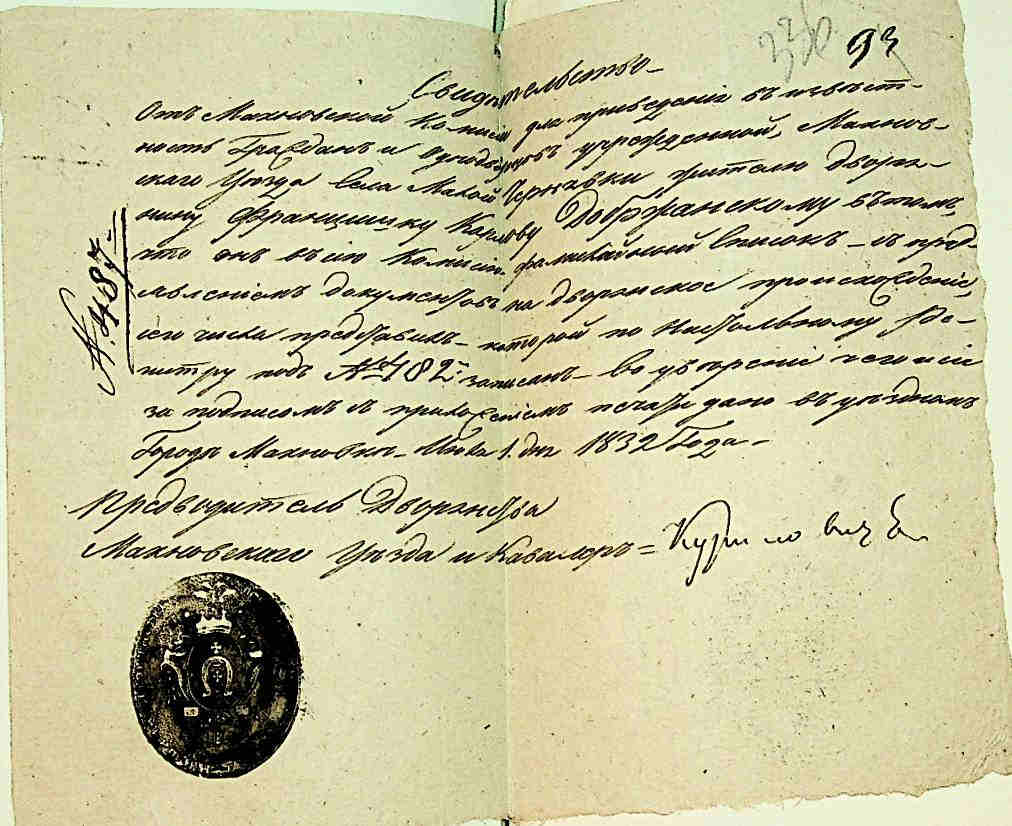 336 93
Свидетельство
Отъ Махновской Комисіи для приведенія въ извѣст-
ность Гражданъ и однодворцовъ учрежденной, Махнов-
скаго Уѣзда Села Малой Чернявки жителю дворя-
нину Францишку Карлову Добржанскому въ томъ,
что онъ въ сію Комисію фамилійный Списокъ – съ пред-
явленіемъ документовъ на дворянское происхожденіе,
сего числа представилъ – которой по Настольному Ре-
гистру подъ № 482 записанъ – во увѣреніе чего и сіе
за подписомъ и приложеніемъ печати дано въ уѣздномъ
Городѣ Махновкѣ – 1. дня 1832 Года –
№ 487
Предводитель Дворянства
Махновскаго Уѣзда и Кавалеръ =